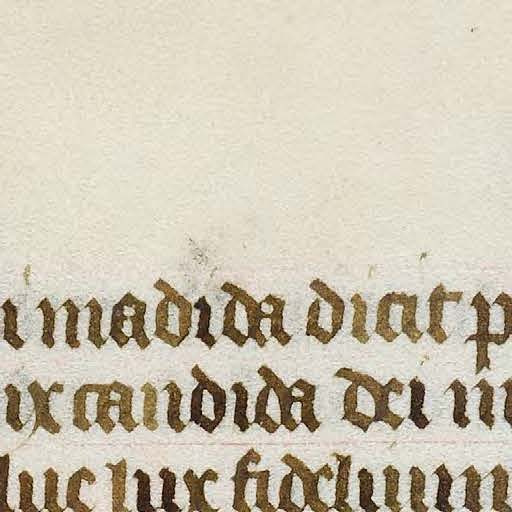 madida dicit p
ix candida dei in
luc lux fidelium